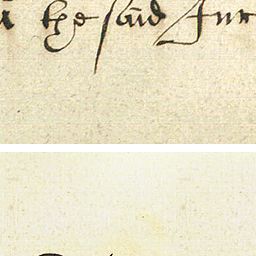 the said Jur